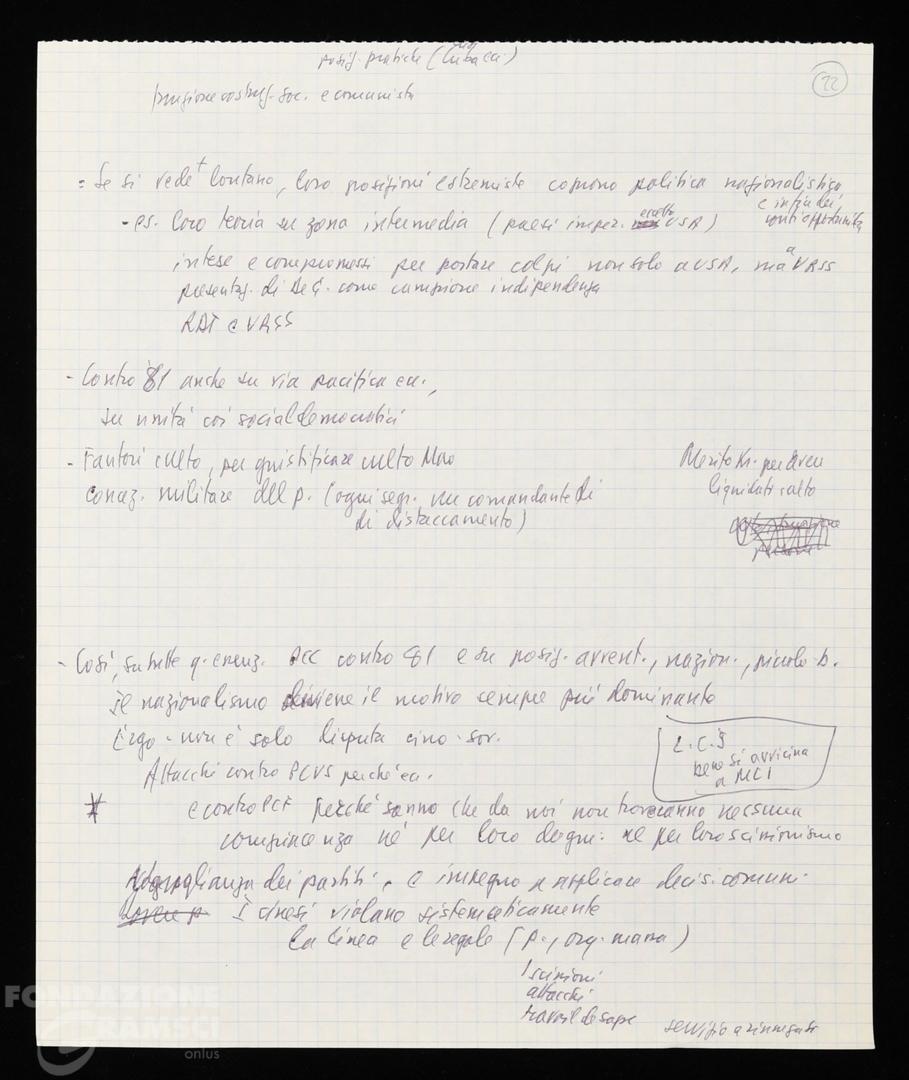 posiz. pratiche (Cuba ecc.)
22
funzione costruz. soc. e comunista
= Se si vede + lontano, loro posizioni estremiste coprono politica nazionalistica,
e infin dei
conti opportunista
- es. loro teoria su zona intermedia (paesi imper. eccetto USA)
intese e compromessi per portare colpi non solo a USA, ma a URSS
presentaz. di De G. come campione indipendenza
RDT e URSS
- Contro 81 anche su via pacifica ecc.,
su unità coi socialdemocratici
- Fautori culto, per giustificare culto Mao
concez. militare del p. (ogni segr. un comandante di
di distaccamento)
Merito Kr. per aver
liquidato culto
- Così, su tutte q. enunz. PCC contro 81 e su posiz. avvent., nazion., piccolo-b.
Il nazionalismo diviene il motivo sempre più dominante
Ergo - non è solo disputa cino-sov.
Attacchi contro PCUS perché ecc.
L.C.J
bene si avvicina
a MCI
e contro PCF perché sanno che da noi non troveranno nessuna
compiacenza né per loro dogm. né per loro scissionismo
Uguaglianza dei partiti, e impegno a applicare decis. comuni.
I cinesi violano sistematicamente
la linea e le regole (p., org. massa)
scissioni
attacchi
travail de sape
servizio a rinnegati
FONDATION
GRAMSCI
onlus